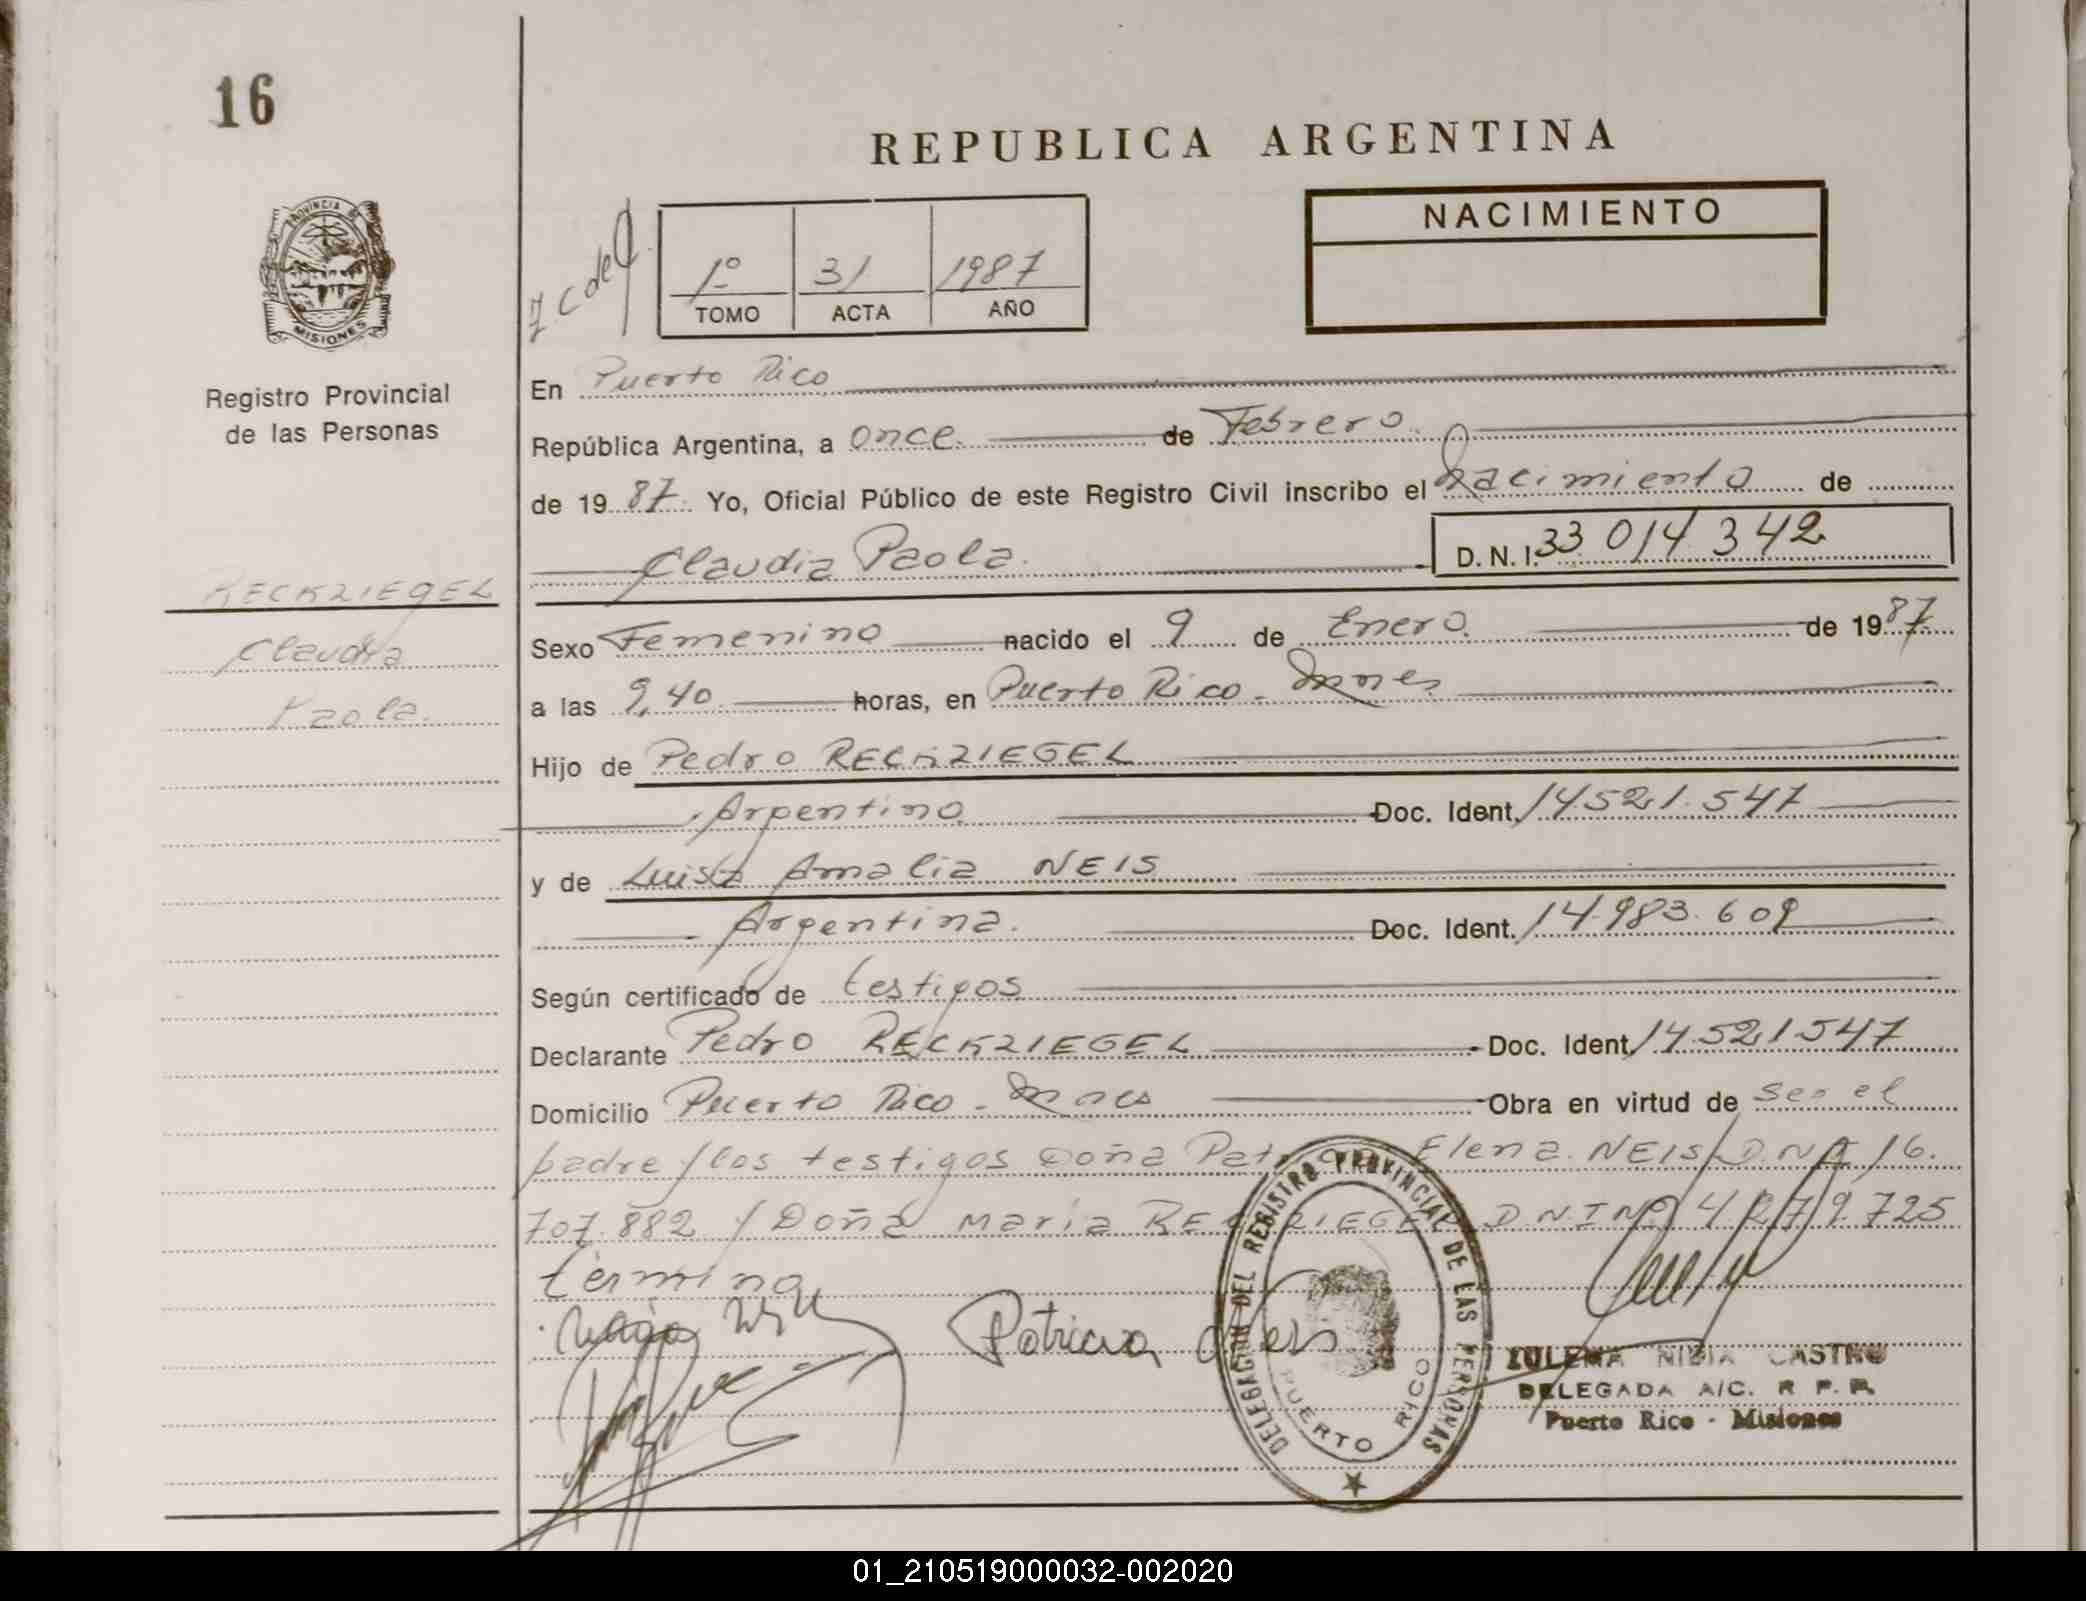 16
REPUBLICA ARGENTINA
PROVINCIA DE
MISIONES
Registro Provincial
de las Personas
1º 31 1987
TOMO ACTA AÑO
NACIMIENTO
En Puerto Rico
República Argentina, a once de Febrero
de 1987. Yo, Oficial Público de este Registro Civil inscribo el Nacimiento de
Claudia Paola
D. N. I. 33 014 342
RECKZIEGEL
Claudia
Paola.
Sexo Femenino nacido el 9 de Enero de 1987
a las 9,40 horas, en Puerto Rico - Mnes
Hijo de Pedro RECKZIEGEL
Argentino Doc. Ident. 14.521.547
y de Luisa Amalia NEIS
Argentina. Doc. Ident. 14.983.609
Según certificado de testigos
Declarante Pedro RECKZIEGEL Doc. Ident. 14.521547
Domicilio Puerto Rico - Mnes Obra en virtud de ser el
padre / los testigos Doña Elena NEIS / D.N.I. 16.
707.882 / Doña María RECKZIEGEL D.N.I.Nº
termina
Patricia Neis
DELEGACION DEL REGISTRO PROVINCIAL DE LAS PERSONAS
PUERTO RICO
ZULEMA NIDIA CASTRO
DELEGADA A/C. R. P. P.
Puerto Rico - Misiones
01_210519000032-002020